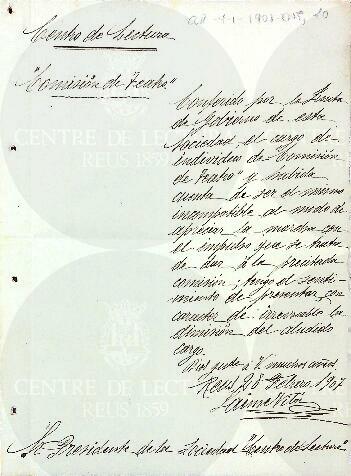 Centro de Lectura
"Comisión de Teatro"
Conferido por la Junta
de Gobierno de esta
Sociedad el cargo de
individuo de "Comisión
de Teatro" y habida
cuenta de ser el mismo
incompatible al modo de
apreciar la marcha con
el impulso que se trata
de dar á la precitada
comisión; tengo el senti-
miento de presentar, con
caracter de irrevocable la
dimisión del aludido
cargo.
Dios gude á V. muchos años
Reus 28 Febrero 1907
Jaime
Sr. Presidente de la Sociedad "Centro de Lectura"
CENTRE DE LECTURA
REUS 1859
CENTRE DE LECT
REUS 1859